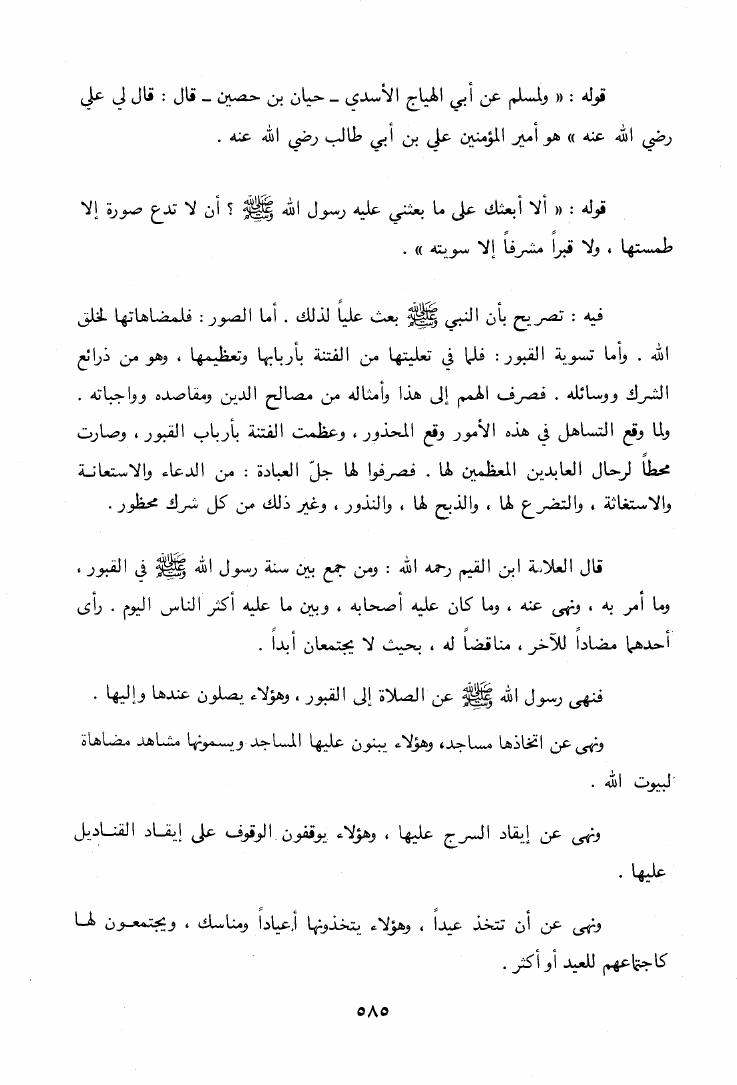 قوله : « ولمسلم عن أبي الهياج الأسدي ـ حيان بن حصين ـ قال : قال لي علي
رضي الله عنه » هو أمير المؤمنين علي بن أبي طالب رضي الله عنه .
قوله : « ألا أبعثك على ما بعثني عليه رسول الله ﷺ ؟ أن لا تدع صورة إلا
طمستها ، ولا قبراً مشرفاً إلا سويته » .
فيه : تصريح بأن النبي ﷺ بعث علياً لذلك . أما الصور : فلمضاهاتها لخلق
الله . وأما تسوية القبور : فلما في تعليتها من الفتنة بأربابها وتعظيمها ، وهو من ذرائع
الشرك ووسائله . فصرف الهمم إلى هذا وأمثاله من مصالح الدين ومقاصده وواجباته .
ولما وقع التساهل في هذه الأمور وقع المحذور ، وعظمت الفتنة بأرباب القبور ، وصارت
محطاً لرحال العابدين المعظمين لها . فصرفوا لها جلّ العبادة : من الدعاء والاستعانة
والاستغاثة ، والتضرع لها ، والذبح لها ، والنذور ، وغير ذلك من كل شرك محظور .
قال العلامة ابن القيم رحمه الله : ومن جمع بين سنة رسول الله ﷺ في القبور ،
وما أمر به ، ونهى عنه ، وما كان عليه أصحابه ، وبين ما عليه أكثر الناس اليوم . رأى
أحدهما مضاداً للآخر ، مناقضاً له ، بحيث لا يجتمعان أبداً .
فنهى رسول الله ﷺ عن الصلاة إلى القبور ، وهؤلاء يصلون عندها وإليها .
ونهى عن اتخاذها مساجد، وهؤلاء يبنون عليها المساجد ويسمونها مشاهد مضاهاة
لبيوت الله .
ونهى عن إيقاد السرج عليها ، وهؤلاء يوقفون الوقوف على إيقاد القناديل
عليها .
ونهى عن أن تتخذ عيداً ، وهؤلاء يتخذونها أعياداً ومناسك ، ويجتمعون لها
كاجتماعهم للعيد أو أكثر .
٥٨٥